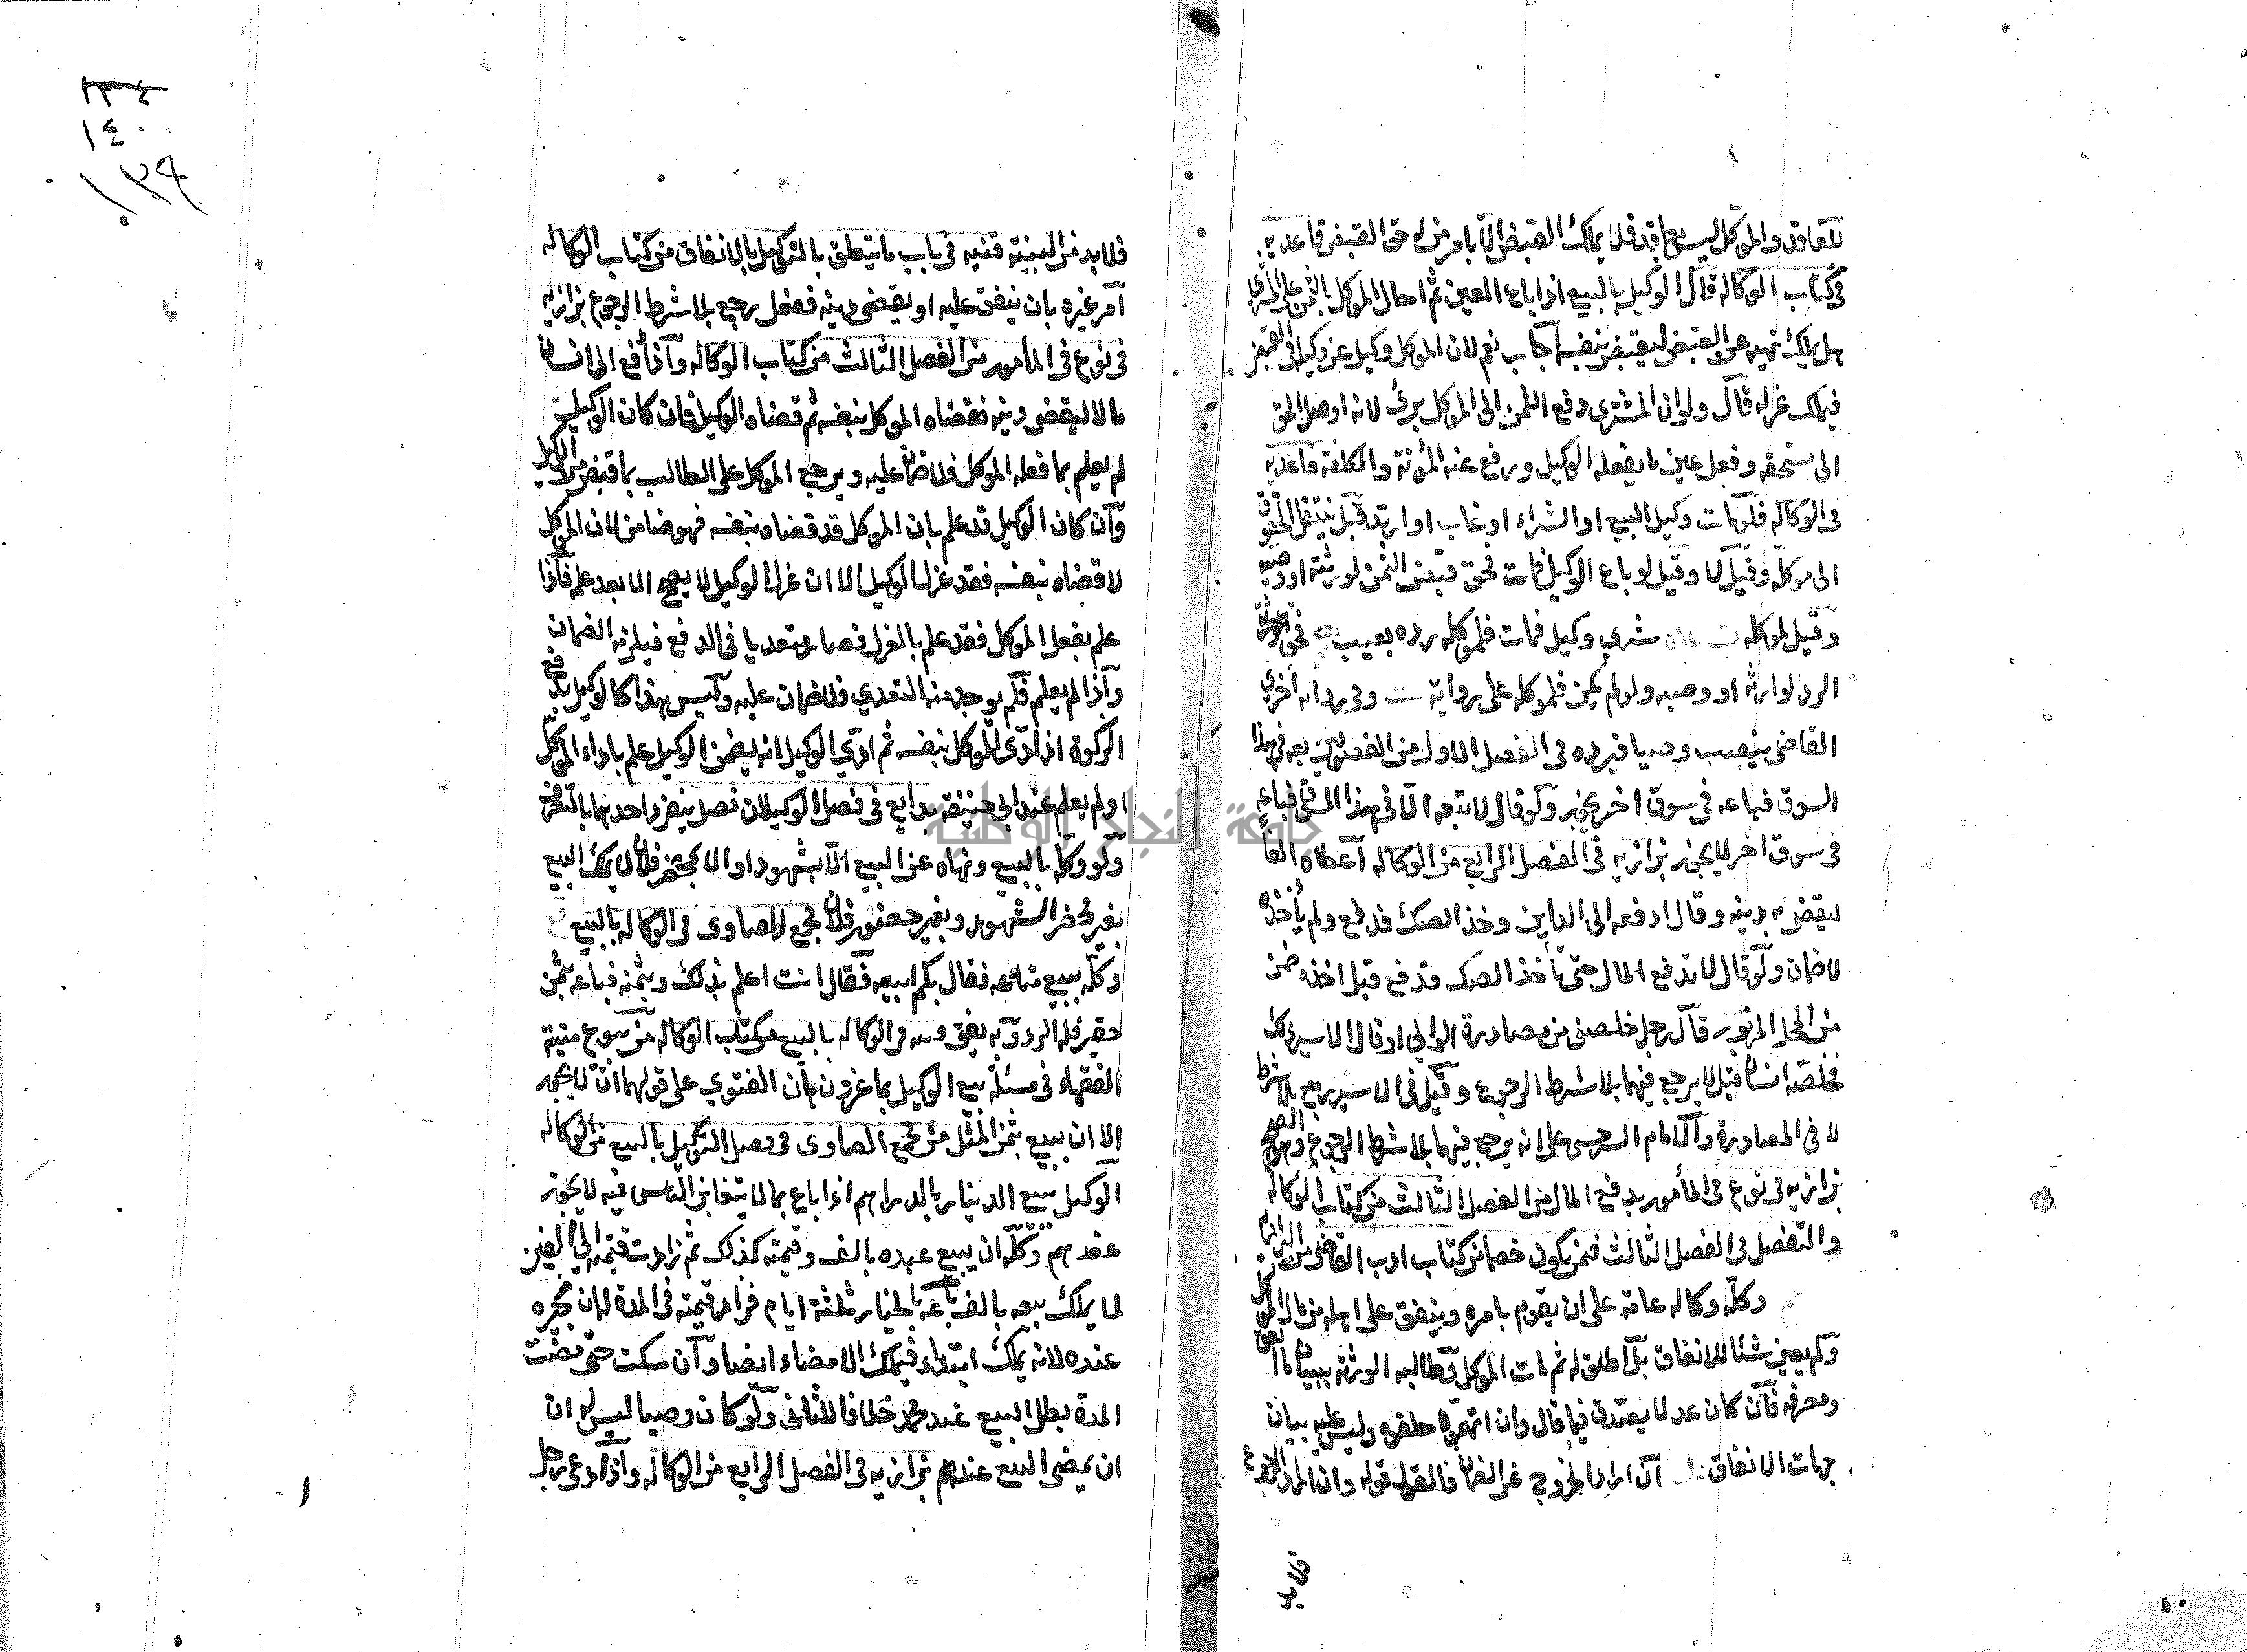 للعاقد والموكل ليس بعاقد فلا يملك القبض الا بامر من له حق القبض قاعديه
في كتاب الوكاله قال الوكيل بالبيع اذا باع العين ثم احال الموكل بالثمن على المشتري
هل يملك نهيه عن القبض ليقبض بنفسه اجاب نعم لان الموكل وكيل عن وكيله في القبض
فيملك عزله قال ولو ان المشتري دفع الثمن الى الموكل برئ لانه اوصل الحق
الى مستحقه وفعل عين ما يفعله الوكيل ورفع عنه المؤنة والكلفة قاعديه
في الوكاله فلو مات وكيل البيع او الشراء او غاب او ارتد قيل ينتقل الحقوق
الى موكله وقيل لا وقيل لو باع الوكيل فمات فحق قبض الثمن لورثته او وصيه
وقيل لموكله شري وكيل فمات فلموكله رده بعيب
الرد لوارثه او وصيه ولو لم يكن فلموكله على رواية وفي رواية اخري
القاضي ينصب وصيا فيرده في الفصل الاول من الفصولين بعه في هذا
السوق فباعه في سوق اخر يجوز ولو قال لا تبعه الا في هذا السوق فباعه
في سوق اخر لا يجوز بزازيه في الفصل الرابع من الوكاله اعطاه الفا
ليقضي به دينه وقال ادفعه الى الداين وخذ الصك فدفع ولم يأخذه
لا ضمان ولو قال لا تدفع المال حتى تأخذ الصك فدفع قبل اخذه ضمن
من المحل المزبور قال رجل خلصني من مصادرة الوالي او قال الاسير ذلك
فخلصه انسان قيل لا يرجع فيهما بلا شرط الرجوع وقيل في الاسير يرجع بلا شرط
لا في المصادرة والامام السرخسي على انه يرجع فيهما بلا شرط الرجوع وهو الصحيح
بزازيه في نوع في المأمور بدفع المال من الفصل الثالث من كتاب الوكاله
والتفصيل في الفصل الثالث فمن يكون خصما من كتاب ادب القاضي من البزازيه
وكله وكاله عامة على ان يقوم بامره وينفق على اهله من مال الموكل
ولم يعين شئا للانفاق بل اطلق له ثم مات الموكل وطالبه الورثة ببيان ما انفق
ومصرفه فان كان عدلا يصدق فيما قال وان اتهموه حلفوه وليس عليه بيان
جهات الانفاق ان اراد الخروج عن الضمان فالقول قوله وان اراد الرجوع
فلا بد
١٤٠
١٣٩
فلا بد من البينة قنيه في باب ما يتعلق بالتوكيل بالانفاق من كتاب الوكاله
امر غيره بان ينفق عليه او يقضي دينه ففعل رجع بلا شرط الرجوع بزازيه
في نوع في المأمور من الفصل الثالث من كتاب الوكاله واذا دفع الى انسان
مالا ليقضي دينه فقضاه الموكل بنفسه ثم قضاه الوكيل فان كان الوكيل
لم يعلم بما فعله الموكل فلا ضمان عليه ويرجع الموكل على الطالب بما قبض من الوكيل
وان كان الوكيل قد علم بان الموكل قد قضاه بنفسه فهو ضامن لان الموكل
لا قضاه بنفسه فقد عزل الوكيل الا ان عزل الوكيل لا يصح الا بعد علمه فاذا
علم بفعل الموكل فقد علم بالعزل فصار متعديا في الدفع فيلزمه الضمان
واذا لم يعلم فلم يوجد منه التعدي فلا ضمان عليه وليس هذا كالوكيل بدفع
الزكوة اذا ادى الموكل بنفسه ثم ادي الوكيل انه يضمن الوكيل علم باداء الموكل
او لم يعلم عند ابي حنيفة بدايع في فصل الوكيلان فصل ينفرد احدهما بالتصرف
ولو وكله بالبيع ونهاه عن البيع الا بشهود او الا بمحضر فلان لا يملك البيع
بغير محضر الشهود وبغير حضور فلان مجمع الفتاوى في الوكاله بالبيع
وكله ببيع متاعه فقال بكم ابيعه فقال انت اعلم بذلك وبثمنه فباعه بثمن
حقير فله الرد وبه يفتى في الوكاله بالبيع من كتاب الوكاله
الفقهاء في مسئلة بيع الوكيل بما عز وهان الفتوي على قولهما انه لا يجوز
الا ان يبيع بثمن المثل من مجمع الفتاوى في فصل التوكيل بالبيع من الوكاله
الوكيل ببيع الدينار بالدراهم اذا باع بما لا يتغابن الناس فيه لا يجوز
عندهم وكله ان يبيع عبده بالف وقيمته كذلك ثم زادت قيمته الى الفين
لا يملك بيعه بالف باعه بالخيار ثلثة ايام فزاد قيمته في المدة له ان يجيزه
عنده لانه يملك ابتداء فيملك الامضاء ايضا وان سكت حتى مضت
المدة بطل البيع عند محمد خلافا للثاني ولو كان وصيا ليس له ان
ان يمضي البيع عندهم بزازيه في الفصل الرابع من الوكاله واذا ادعى رجل
جامعة النجاح الوطنية